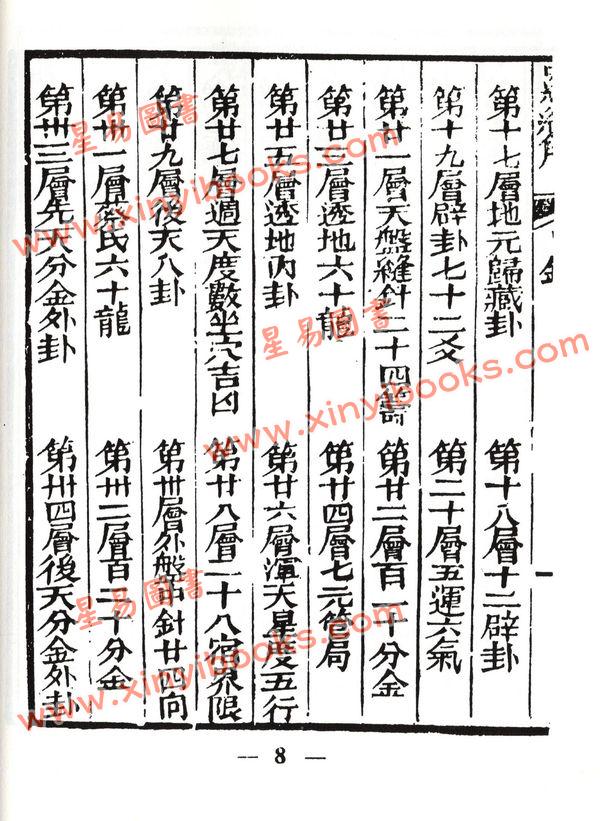 第十七層地元歸藏卦　第十八層十二辟卦
第十九層辟卦七十二爻　第二十層五運六氣
第廿一層天盤縫針二十四籌　第廿二層百二十分金
第廿三層透地六十龍　第廿四層七元禽局
第廿五層透地內卦　第廿六層渾天星度五行
第廿七層週天度數坐穴吉凶　第廿八層二十八宿界限
第廿九層後天八卦　第卅層外盤中針廿四向
第卅一層六十龍　第卅二層百二十分金
第卅三層先天分金外卦　第卅四層後天分金外卦
— 8 —
星易圖書
www.xinyibooks.com
星易圖書
www.xinyibooks.com
星易圖書
www.xinyibooks.com